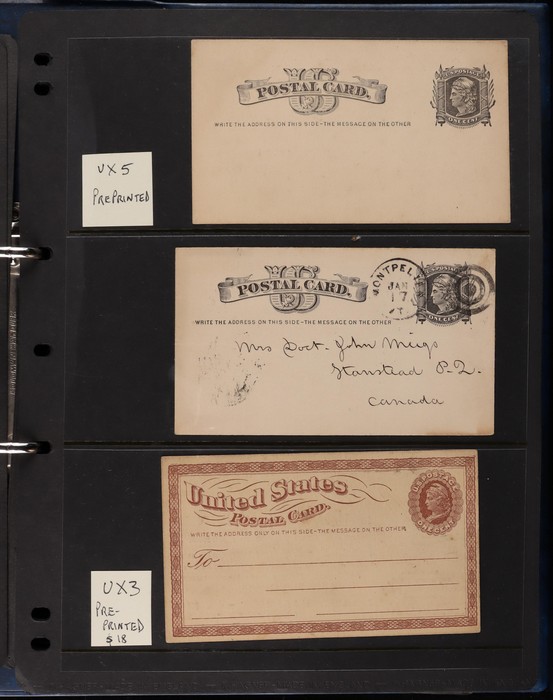 U.S.
POSTAL CARD.
U.S. POSTAGE
ONE CENT
WRITE THE ADDRESS ON THIS SIDE-THE MESSAGE ON THE OTHER
UX5
PREPRINTED
U.S.
POSTAL CARD.
MONTPELIER
JAN
17
ONE CENT
WRITE THE ADDRESS ON THIS SIDE-THE MESSAGE ON THE OTHER
Mrs Doct. John Meigs
Stanstead P.Q.
Canada
United States
POSTAL CARD.
U.S. POSTAGE
ONE CENT
WRITE THE ADDRESS ONLY ON THIS SIDE-THE MESSAGE ON THE OTHER
To
UX3
PRE-
PRINTED
$18